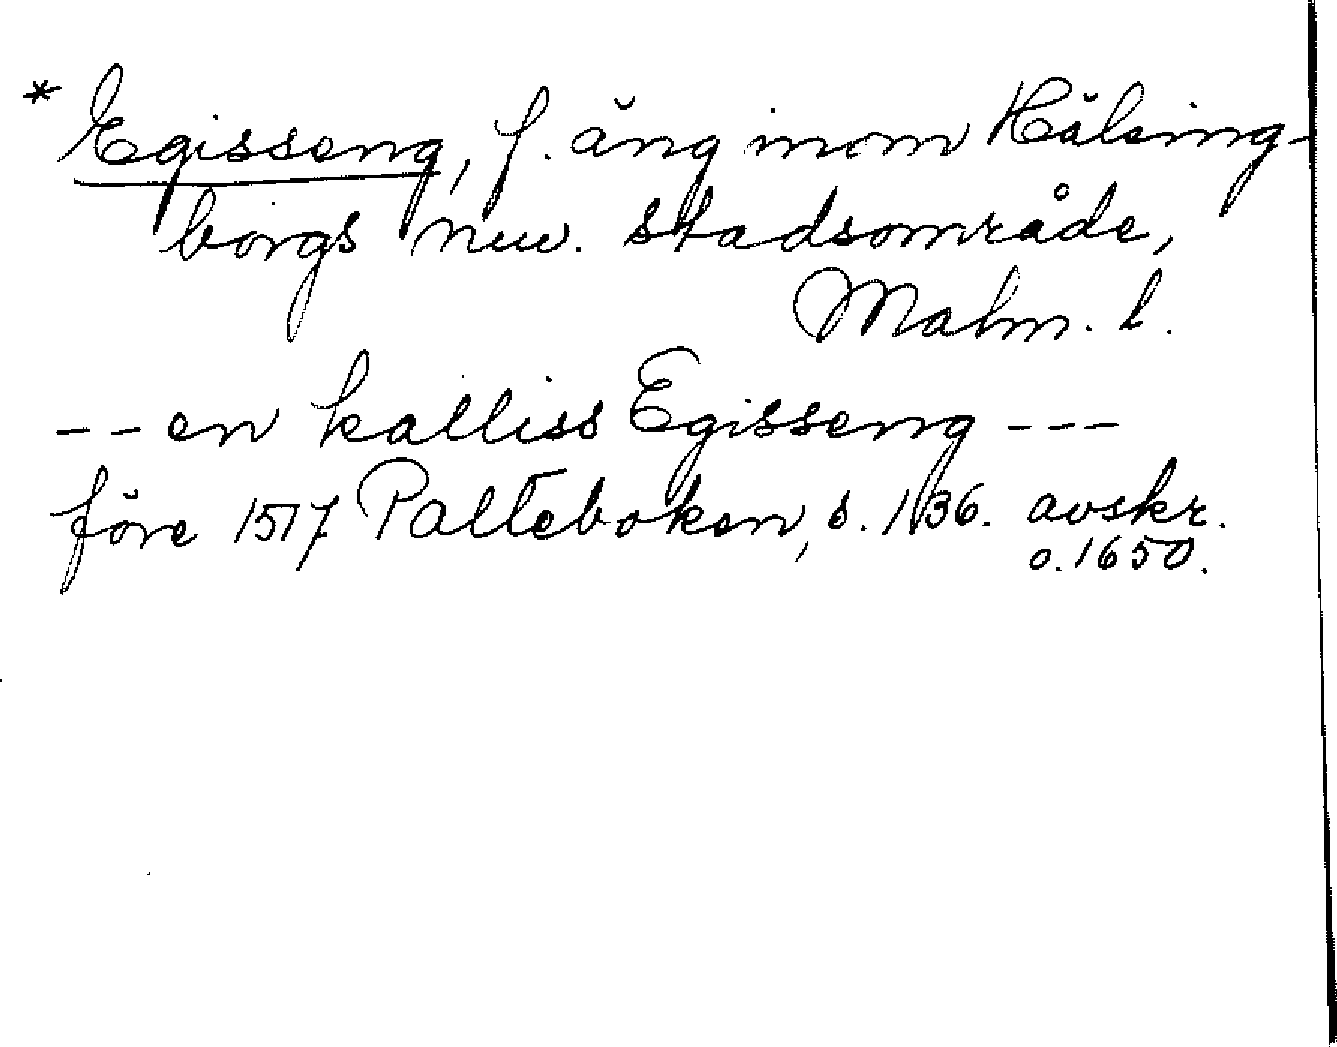 * Egisseng, f. äng inom Hälsing-
borgs nuv. stadsområde,
Malm. l.
-- en kalliss Egisseng ---
före 1517 Palteboken, s. 136. avskr.
o. 1650.